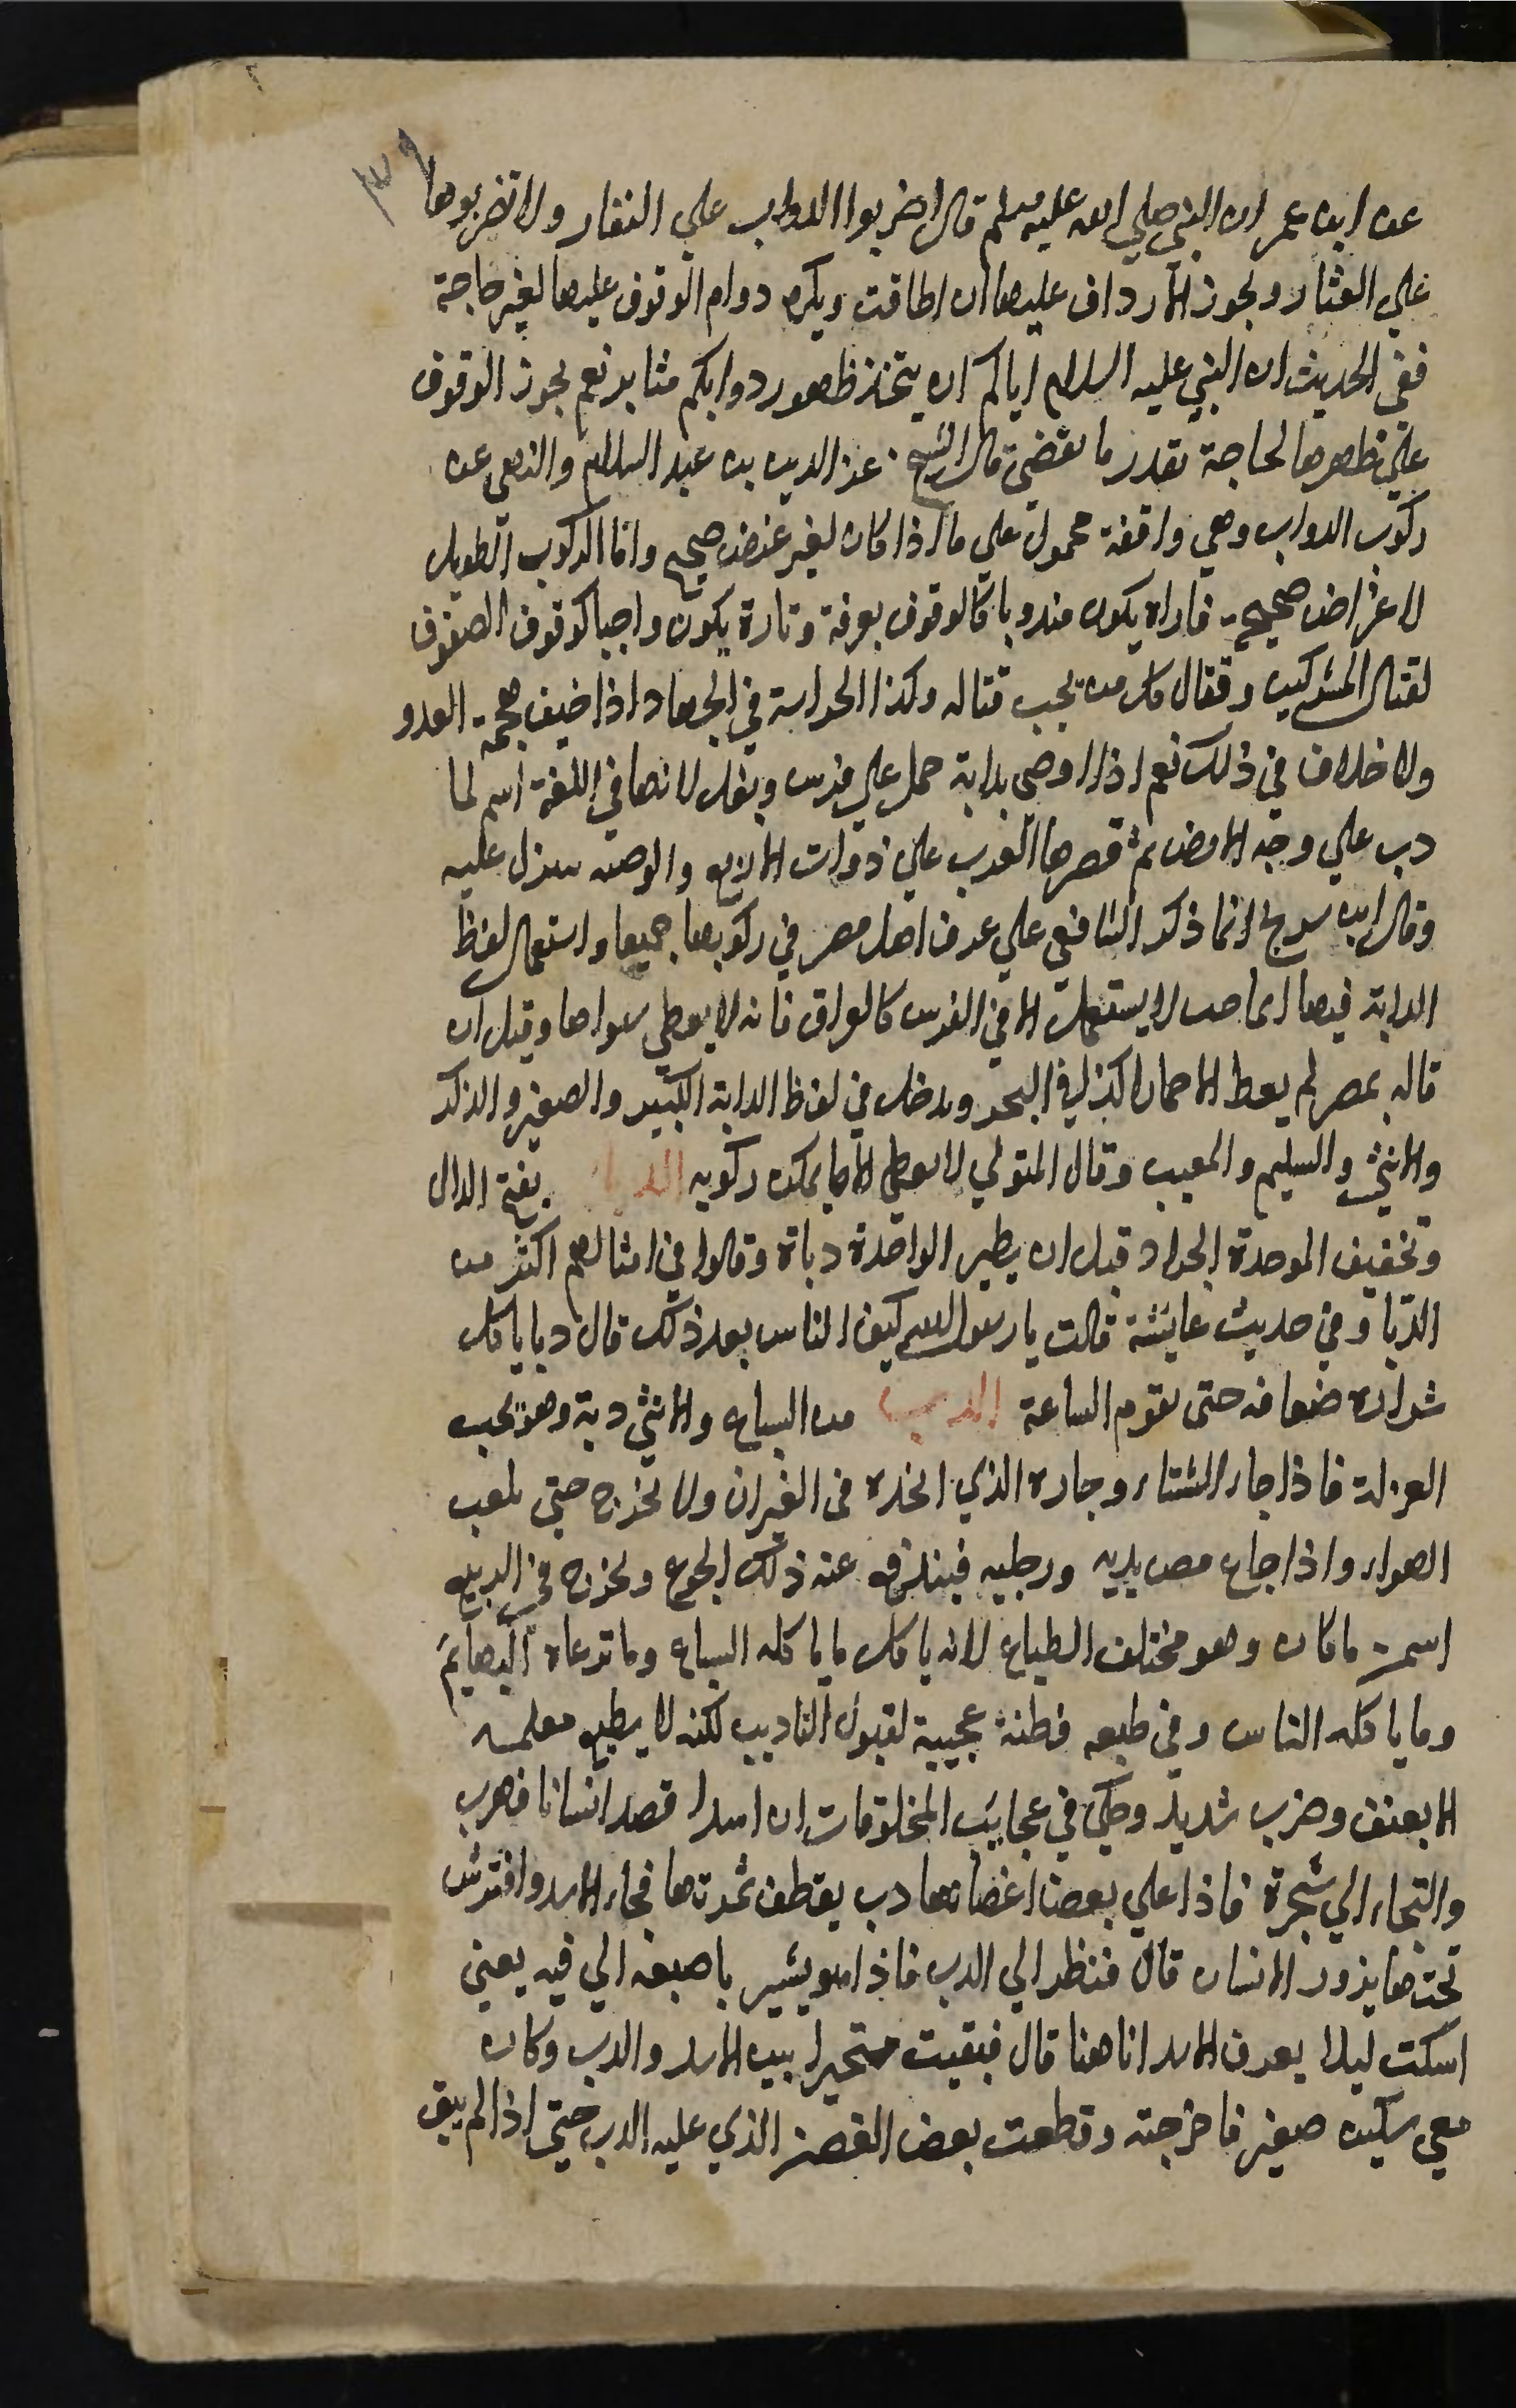 ٣٩
عن ابن عمر ان النبي صلي الله عليه وسلم قال اضربوا الدواب علي النفار ولا تضربوها
علي العثار ويجوز الارداف عليها ان اطاقت ويكره دوام الوقوف عليها لغير حاجة
ففي الحديث ان النبي عليه السلام اياكم ان يتخذ ظهور دوابكم منابر نعم يجوز الوقوف
علي ظهرها لحاجة بقدر ما تقضي قال الشيخ عز الدين بن عبد السلام والنهي عن
ركوب الدواب وهي واقفة محمول علي ما اذا كان لغير غرض صحيح واما الركوب الطويل
لاغراض صحيحة فتارة يكون مندوبا كالوقوف بعرفة وتارة يكون واجبا كوقوف الصفوف
لقتال المشركين وقتال كل من يجب قتاله وكذا الحراسة في الجهاد اذا خيف هجمة العدو
ولا خلاف في ذلك نعم اذا اوصي بدابة حمل علي فرس وبغل لانها في اللغة اسم لما
دب علي وجه الارض ثم قصرها العرب علي ذوات الاربع والوصية تنزل عليه
وقال ابن سريج انما ذكر الشافعي علي عرف اهل مصر في ركوبها جميعا واستعمال لفظ
الدابة فيها اما حيث لا يستعمل الا في الفرس كالعراق فانه لا يعطي سواها وقيل ان
قاله بمصر لم يعط الا حمارا كذا في البحر ويدخل في لفظ الدابة الكبير والصغير والذكر
والانثي والسليم والمعيب وقال المتولي لا يعطي الا ما يمكن ركوبه الدبا بفتح الدال
وتخفيف الموحدة الجراد قبل ان يطير الواحدة دباة وقالوا في امثالهم اكثر من
الدبا وفي حديث عايشة قالت يا رسول الله كيف الناس بعد ذلك قال دبا ياكل
شداده ضعافه حتي تقوم الساعة الدب من السباع والانثي دبة وهو يحب
العزلة فاذا جاء الشتاء وجاره الذي اتخذه في الغيران ولا يخرج حتي يطيب
الهواء واذا جاع مص يديه ورجليه فيندفع عنه ذلك الجوع ويخرج في الربيع
اسمن ما كان وهو مختلف الطباع لانه ياكل ما ياكله السباع وما ترعاه البهايم
وما ياكله الناس وفي طبعه فطنة عجيبة لقبول التاديب لكنه لا يطيع معلمه
الا بعنف وضرب شديد وحكي في عجايب المخلوقات ان اسدا قصد انسانا فهرب
والتجاء الي شجرة فاذا علي بعض اغصانها دب يقطف ثمرتها فجاء الاسد وافترش
تحتها ينزور الانسان قال فنظر الي الدب فاذا هو يشير باصبعه الي فيه يعني
اسكت ليلا يعرف الاسد انا هنا قال فبقيت متحيرا بين الاسد والدب وكان
معي سكين صغير فاخرجته وقطعت بعض الغصن الذي عليه الدب حتي اذا لم يبق